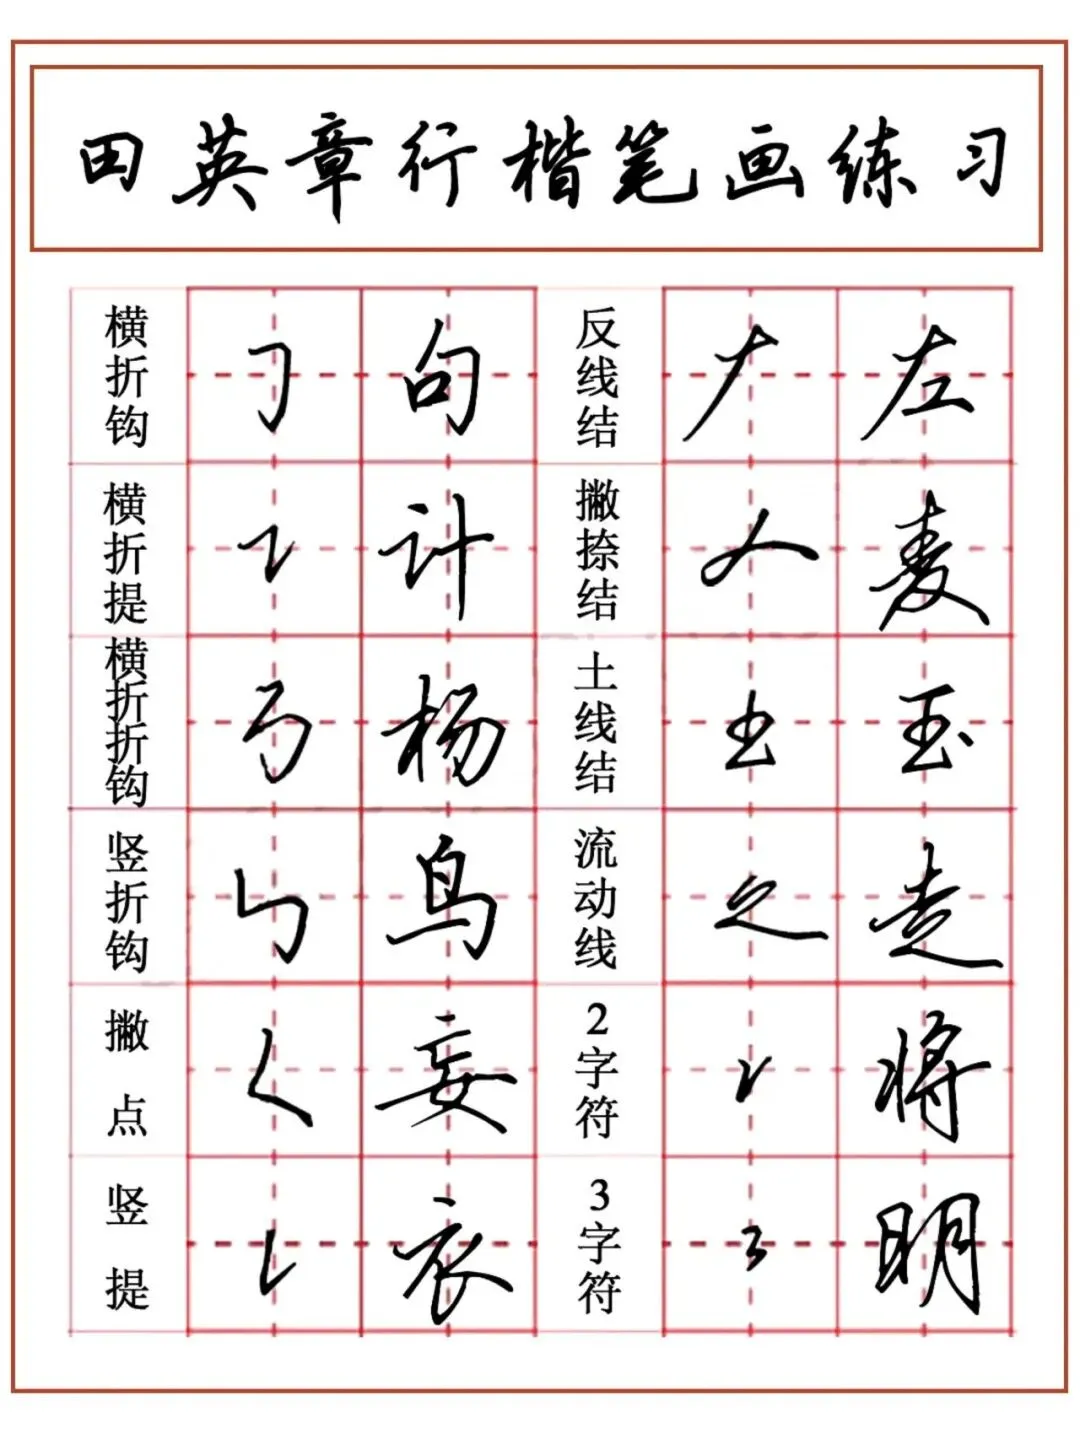 田英章行楷笔画练习
横折钩 ㇆ 句 反线结 𠂇 左
横折提 ㇊ 计 撇捺结 人 麦
横折折钩 ㇡ 杨 土线结 土 玉
竖折钩 ㇉ 鸟 流动线 走
撇点 ㇛ 妄 2字符 将
竖提 ㇙ 衣 3字符 明